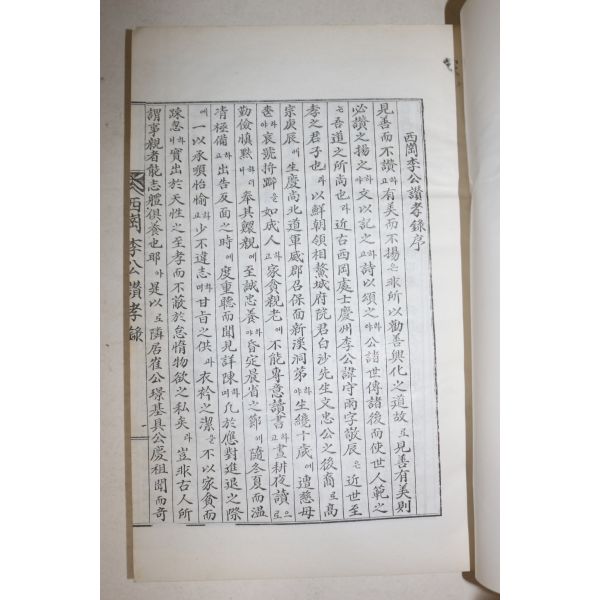 西岡李公讚孝錄序
見善而不讚하고有美而不揚은非所以勸善興化之道故로見善有美則
必讚之揚之하야文以記之하고詩以頌之하야公諸世傳諸後而使世人範之
는吾道之所尚也라近古西岡處士慶州李公諱守兩字敬辰은近世至
孝之君子也라以鮮朝領相鰲城府院君白沙先生文忠公之後裔로高
宗庚辰에生慶尚北道軍威郡召保面新溪洞第하야生纔十歲에遭慈母
喪하야哀號擗踊을如成人하고家貧親老에不能專意讀書하고晝耕夜讀으로
勤儉愼默하며奉其鰥親에至誠忠養하야昏定晨省之節에隨冬夏而溫
凊極備하고出告反面之時에度重聽而聞見詳陳하며凡於應對進退之際
에一以承順怡愉하고少不違志하며甘旨之供과衣衿之潔을不以家貧而
疎忽하니實出於天性之至孝而不蔽於怠惰物欲之私矣라豈非古人所
謂事親者能志體俱養也耶아是以로隣居崔公璟基具公慶祖聞而奇
西岡李公讚孝錄